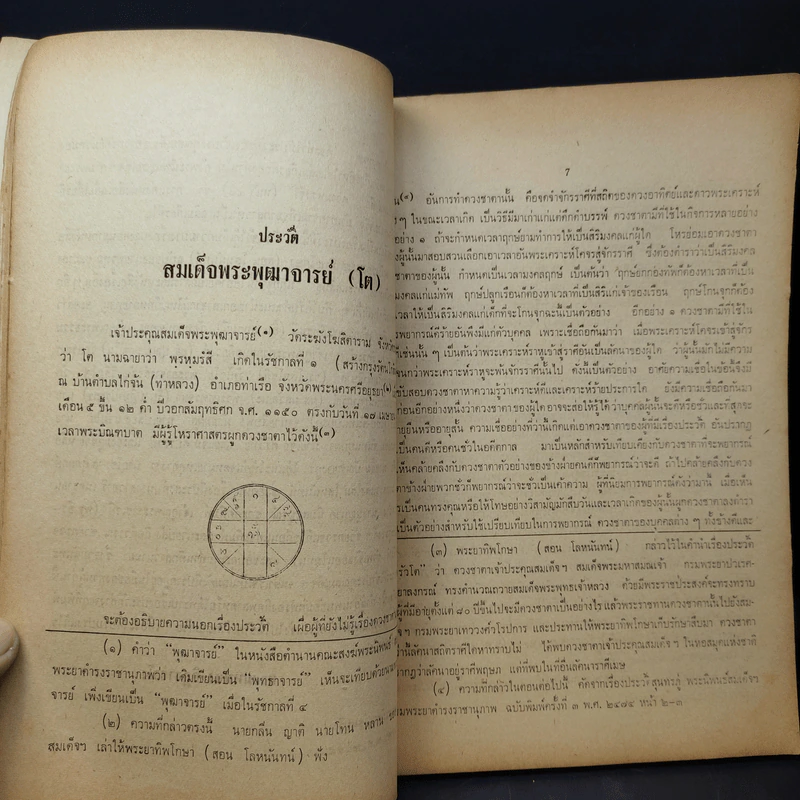 ประวัติ
สมเด็จพระพุฒาจารย์ (โต)
เจ้าประคุณสมเด็จพระพุฒาจารย์(๑) วัดระฆังโฆสิตาราม
ว่า โต นามฉายาว่า พฺรหฺมรํสี เกิดในรัชกาลที่ ๑ (สร้างกรุงรัตน
ณ บ้านตำบลไก่จ้น (ท่าหลวง) อำเภอท่าเรือ จังหวัดพระนครศรีอยุธยา(๒)
เดือน ๕ ขึ้น ๑๒ ค่ำ ปีวอกสัมฤทธิศก จ.ศ. ๑๑๕๐ ตรงกับวันที่ ๑๗
เวลาพระบิณฑบาต มีผู้รู้โหราศาสตร์ผูกดวงชาตาไว้ดังนี้(๓)
จะต้องอธิบายความนอกเรื่องประวัติ เผื่อผู้ที่ยังไม่รู้เรื่องดวงชาตา
(๑) คำว่า "พุฒาจารย์" ในหนังสือตำนานคณะสงฆ์พระนิพนธ์
พระยาดำรงราชานุภาพว่า เดิมเขียนเป็น "พุทธาจารย์" เห็นจะเทียบด้วย
จารย์ เพิ่งเขียนเป็น "พุฒาจารย์" เมื่อในรัชกาลที่ ๔
(๒) ความที่กล่าวตรงนี้ นายกลึ่น ญาติ นายโทน หลาน
สมเด็จฯ เล่าให้พระยาทิพโกษา (สอน โลหนันทน์) ฟัง
7
(๔) อันการทำดวงชาตานั้น คือจดจำจักรราศีที่สถิตของดวงอาทิตย์และดาวพระเคราะห์
ๆ ในขณะเวลาเกิด เป็นวิธีมีมาเก่าแก่แต่ดึกดำบรรพ์ ดวงชาตามีที่ใช้ในกิจการหลายอย่าง
อย่าง ๑ ถ้าจะกำหนดเวลาฤกษ์ยามทำการให้เป็นสิริมงคลแก่ผู้ใด โหรย่อมเอาดวงชาตา
ผู้นั้นมาสอบสวนเลือกเอาเวลาอันพระเคราะห์โคจรสู่จักรราศี ซึ่งต้องตำราว่าเป็นสิริมงคล
ชาตาของผู้นั้น กำหนดเป็นเวลามงคลฤกษ์ เป็นต้นว่า ฤกษ์ยกกองทัพก็ต้องหาเวลาที่เป็น
มงคลแก่แม่ทัพ ฤกษ์ปลูกเรือนก็ต้องหาเวลาที่เป็นสิริแก่เจ้าของเรือน ฤกษ์โกนจุกก็ต้อง
เวลาให้เป็นสิริมงคลแก่เด็กที่จะโกนจุกฉะนี้เป็นตัวอย่าง อีกอย่าง ๑ ดวงชาตามีที่ใช้ใน
พยากรณ์ดีร้ายอันพึงมีแก่ตัวบุคคล เพราะเชื่อถือกันมาว่า เมื่อพระเคราะห์โคจรเข้าสู่จักร
ที่เช่นนั้น ๆ เป็นต้นว่าพระเคราะห์ราหูเข้าสู่ราศีอันเป็นลัคนาของผู้ใด ว่าผู้นั้นมักไม่มีความ
จนกว่าพระเคราะห์ราหูจะพ้นจักรราศีนั้นไป ดังนี้เป็นตัวอย่าง อาศัยความเชื่อในข้อนี้จึงมี
สอบดวงชาตาหาความรู้ว่าเคราะห์ดีและเคราะห์ร้ายประการใด ยังมีความเชื่อถือกันมา
ก่อนอีกอย่างหนึ่งว่าดวงชาตาของผู้ใดอาจจะส่อให้รู้ได้ว่าบุคคลผู้นั้นจะดีหรือชั่วและที่สุดจะ
อายุยืนหรืออายุสั้น ความเชื่ออย่างที่ว่านี้เกิดแต่เอาดวงชาตาของผู้ที่มีเรื่องประวัติ อันปรากฏ
เป็นคนดีหรือคนชั่วในอดีตกาล มาเป็นหลักสำหรับเทียบเคียงกับดวงชาตาที่จะพยากรณ์
เห็นคล้ายคลึงกับดวงชาตาตัวอย่างของข้างฝ่ายคนดีก็พยากรณ์ว่าจะดี ถ้าไปคล้ายคลึงกับดวง
ชาตาข้างฝ่ายพวกชั่วก็พยากรณ์ว่าจะชั่วเป็นเค้าความ ผู้ที่นิยมการพยากรณ์ดังว่ามานี้ เมื่อเห็น
เป็นคนทรงคุณหรือให้โทษอย่างวิสามัญมักสืบวันและเวลาเกิดของผู้นั้นผูกดวงชาตาลงตำรา
เป็นตัวอย่างสำหรับใช้เปรียบเทียบในการพยากรณ์ ดวงชาตาของบุคคลต่าง ๆ ทั้งข้างดีและ
(๓) พระยาทิพโกษา (สอน โลหนันทน์) กล่าวไว้ในคำนำเรื่องประวัติ
ว่า ดวงชาตาเจ้าประคุณสมเด็จฯ สมเด็จพระมหาสมณเจ้า กรมพระยาปวเรศ
ทรงคำนวณถวายสมเด็จพระพุทธเจ้าหลวง ด้วยมีพระราชประสงค์จะทรงทราบ
ผู้ที่มีอายุตั้งแต่ ๘๐ ปีขึ้นไปจะมีดวงชาตาเป็นอย่างไร แล้วพระราชทานดวงชาตานั้นไปยังสม
กรมพระยาเทววงศ์วโรปการ และประทานให้พระยาทิพโกษาเก็บรักษาสืบมา ดวงชาตา
ลัคนาสถิตราศีใดหาทราบไม่ ได้พบดวงชาตาเจ้าประคุณสมเด็จฯ ในหอสมุดแห่งชาติ
ว่าลัคนาอยู่ราศีพฤษภ แต่ที่พบในที่อื่นลัคนาราศีเมษ
(๔) ความที่กล่าวในตอนต่อไปนี้ คัดจากเรื่องประวัติสุนทรภู่ พระนิพนธ์สมเด็จฯ
กรมพระยาดำรงราชานุภาพ ฉบับพิมพ์ครั้งที่ ๓ พ.ศ. ๒๔๗๔ หน้า ๒-๓